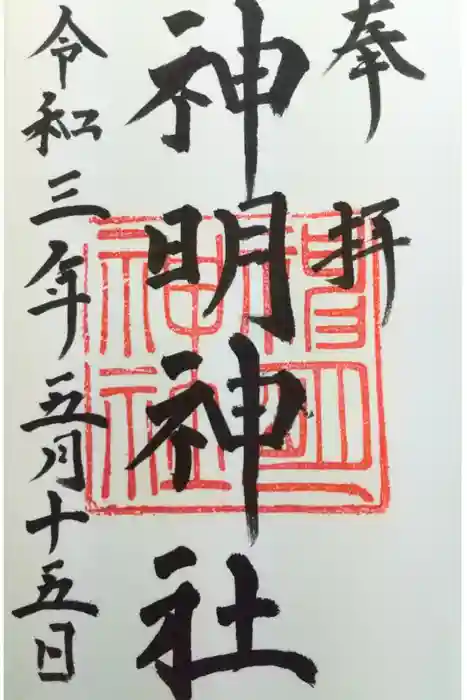 奉拝
神明神社
令和三年五月十五日
神明神社